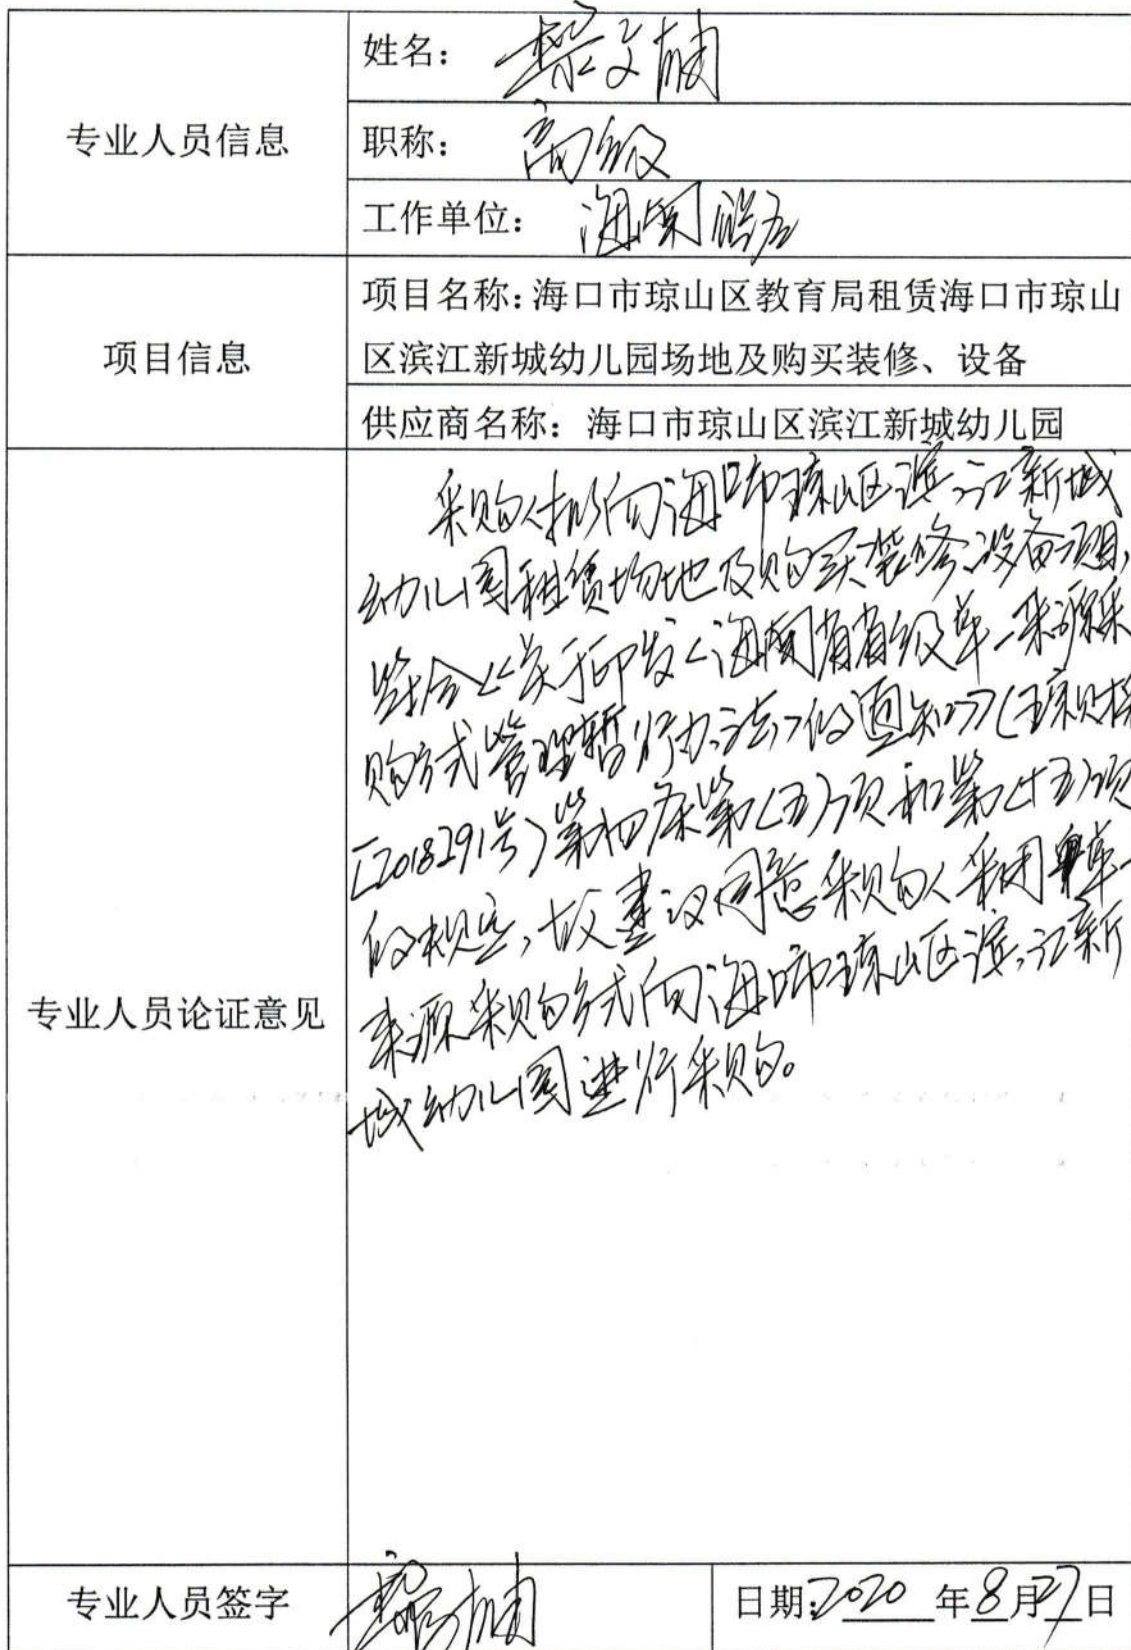 专业人员信息
姓名:
职称: 高级
工作单位: 海南
项目信息
项目名称:海口市琼山区教育局租赁海口市琼山
区滨江新城幼儿园场地及购买装修、设备
供应商名称: 海口市琼山区滨江新城幼儿园
专业人员论证意见
采购人拟向海口市琼山区滨江新城
幼儿园租赁场地及购买装修、设备项目,
符合《关于印发<海南省省级单一来源采
购方式管理暂行办法>的通知》(琼财采
[2018291号)第四条第(五)项和第(十五)项
的规定,故建议同意采购人采用单一
来源采购方式向海口市琼山区滨江新
城幼儿园进行采购。
专业人员签字
日期:2020 年8月27日